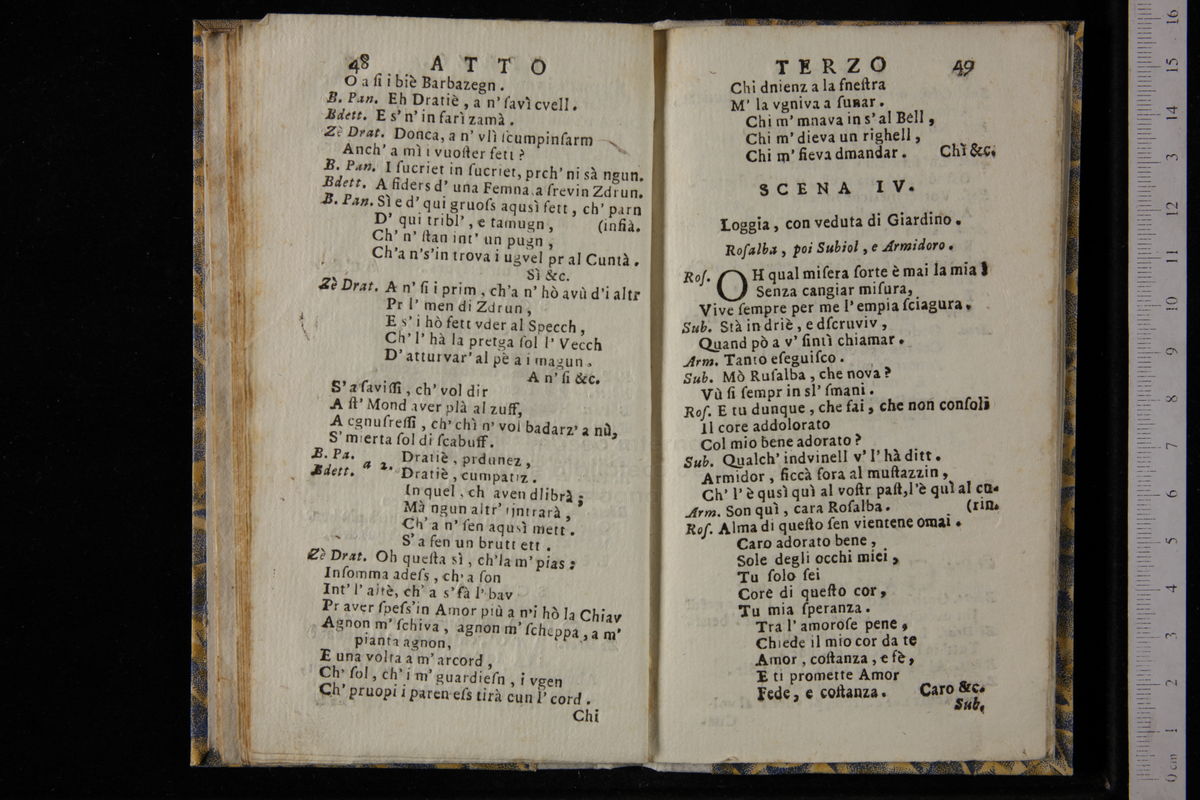 48 ATTO
O a ſi i biè Barbazegn.
B. Pan. Eh Dratiè, a n' ſavì cvell.
Bdett. E s' n' in farì zamà.
Zè Drat. Donca, a n' vlì ſcumpinſarm
Anch' a mì i vuoſter fett?
B. Pan. I ſucriet in ſucriet, prch' ni sà ngun.
Bdett. A fiders d' una Femna a ſrevin Zdrun.
B. Pan. Sì e d' qui gruoſs aqusì fett, ch' parn
D' qui tribl', e tamugn, (inſià.
Ch' n' ſtan int' un pugn,
Ch'a n's'in trova i ugvel pr al Cuntà.
Sì &c.
Zè Drat. A n' ſi i prim, ch'a n' hò avù d'i altr
Pr l' men di Zdrun,
E s' i hò fett vder al Specch,
Ch' l' hà la pretga ſol l' Vecch
D' atturvar' al pè a i magun.
A n' ſi &c.
S' a ſaviſſi, ch' vol dir
A ſt' Mond aver plà al zuff,
A cgnuſreſſi, ch' chì n' vol badarz' a nù,
S' mierta ſol di ſcabuff.
B. Pa. a 2. Dratiè, prdunez,
Bdett. Dratiè, cumpatiz.
In quel, ch aven dlibrà;
Mà ngun altr' ijntrarà,
Ch' a n' ſen aqusì mett.
S' a ſen un brutt ett.
Zè Drat. Oh queſta sì, ch'la m' pias:
Inſomma adeſs, ch' a ſon
Int' l' altè, ch' a s'fà l' bav
Pr aver ſpeſs'in Amor più a n'i hò la Chiav
Agnon m' ſchiva, agnon m' ſcheppa, a m'
pianta agnon,
E una volta a m' arcord,
Ch' ſol, ch' i m' guardieſn, i vgen
Ch' pruopi i paren eſs tirà cun l' cord.
Chi
TERZO 49
Chi dnienz a la fneſtra
M' la vgniva a ſunar.
Chi m' mnava in s' al Bell,
Chi m' dieva un righell,
Chi m' fieva dmandar. Chì &c.
SCENA IV.
Loggia, con veduta di Giardino.
Roſalba, poi Subiol, e Armidoro.
Roſ. OH qual miſera ſorte è mai la mia!
Senza cangiar miſura,
Vive ſempre per me l' empia ſciagura.
Sub. Stà in driè, e dſcruviv,
Quand pò a v' ſintì chiamar.
Arm. Tanto eſeguiſco.
Sub. Mò Ruſalba, che nova?
Vù ſi ſempr in sl' ſmani.
Roſ. E tu dunque, che fai, che non conſoli
Il core addolorato
Col mio bene adorato?
Sub. Qualch' indvinell v' l' hà ditt.
Armidor, ficcà fora al muſtazzin,
Ch' l' è qusì quì al voſtr paſt, l'è quì al cu-
Arm. Son quì, cara Roſalba. (rin.
Roſ. Alma di queſto ſen vientene omai.
Caro adorato bene,
Sole degli occhi miei,
Tu ſolo ſei
Core di queſto cor,
Tu mia ſperanza.
Tra l' amoroſe pene,
Chiede il mio cor da te
Amor, coſtanza, e fè,
E ti promette Amor
Fede, e coſtanza. Caro &c.
Sub.